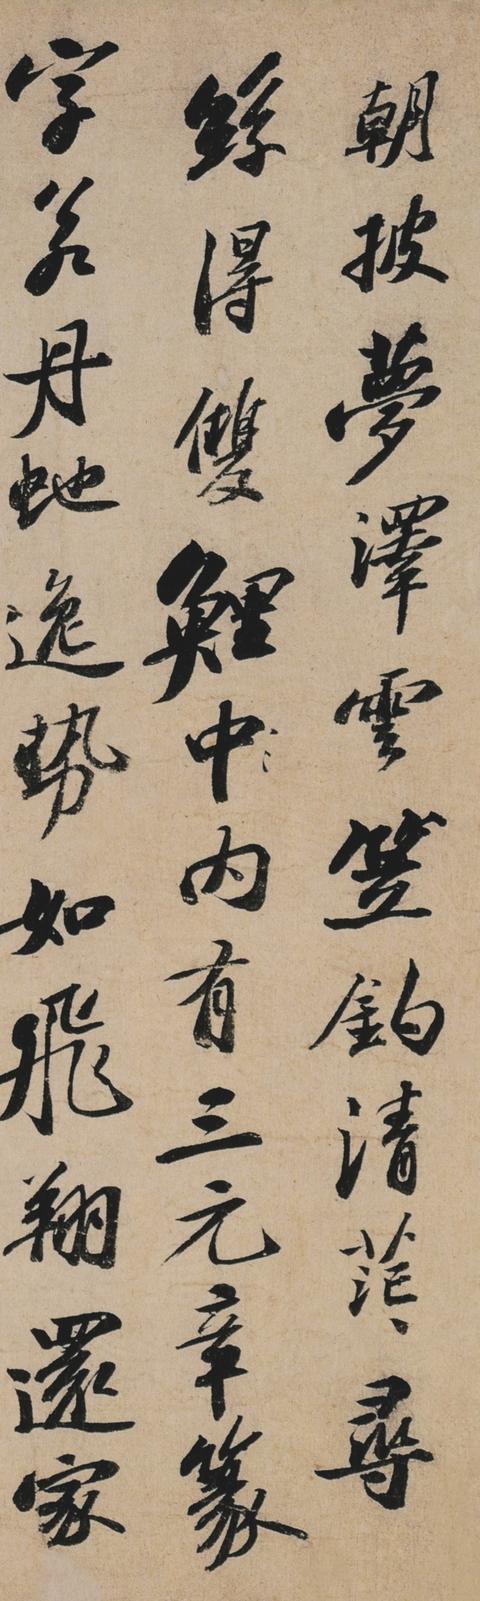 朝披夢澤雲笠釣清茫〻尋
絲得雙鯉中〻内有三元章篆
字若丹虵逸勢如飛翔還家